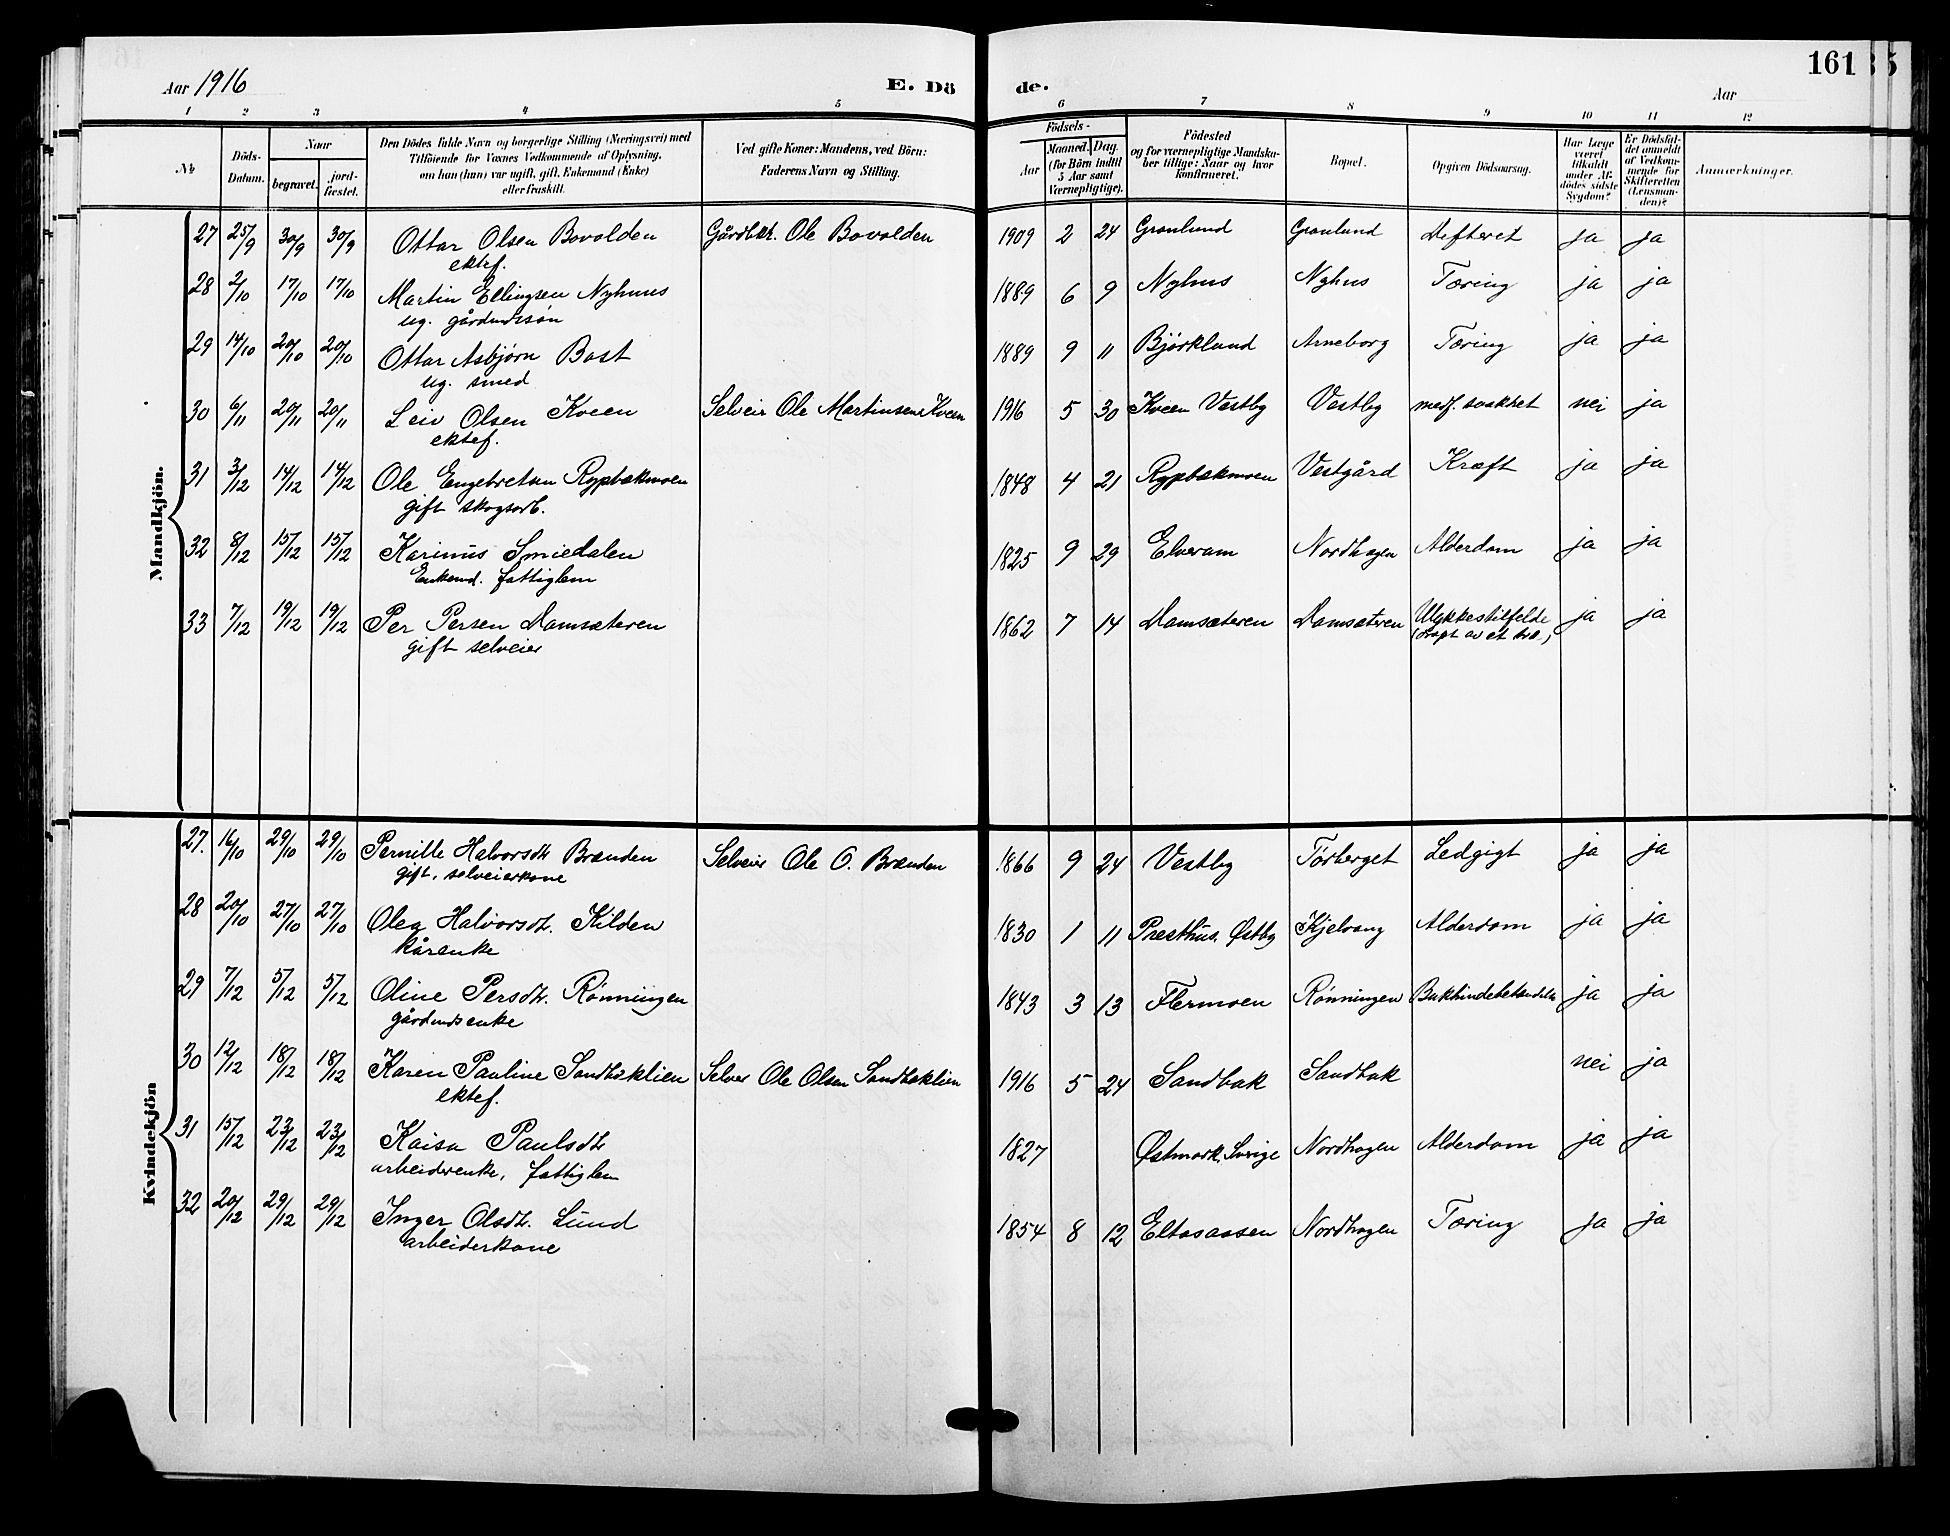 Aar 1916 E. Dö de. Aar 161
1 2 3 4 5 6 7 8 9 10 11 12
No Döds-Datum. Naar begravet. jord-fæstet. Den Dödes fulde Navn og borgerlige Stilling (Næringsvei) med Tilföiende for Voxnes Vedkommende af Oplysning, om han (hun) var ugift, gift, Enkemand (Enke) eller fraskilt. Ved gifte Koner: Mandens, ved Börn: Faderens Navn og Stilling. Födsels- Aar Maaned. Dag. (for Börn indtil 5 Aar samt Værnepligtige). Födested og for værnepligtige Mandskaber tillige: Naar og hvor konfirmeret. Bopæl. Opgiven Dödsaarsag. Har Læge været tilkaldt under Afdödes sidste Sygdom? Er Dödsfaldet anmeldt af Vedkommende for Skifteretten (Lensmanden)? Anmærkninger.
Mandkjön.
27 25/9 30/9 30/9 Ottar Olsen Bovolden Gårdbkr. Ole Bovolden 1909 2 24 Granlund Granlund Difteret ja ja
ektef.
28 2/10 17/10 17/10 Martin Ellingsen Nyhuus 1889 6 9 Nyhus Nyhus Tæring ja ja
ug. gårdmdssøn
29 14/10 20/10 20/10 Ottar Asbjørn Bast 1889 9 11 Bjørklund Arneborg Tæring ja ja
ug. smed
30 6/11 20/11 20/11 Leiv Olsen Kveen Selveier Ole Martinsen Kveen 1916 5 30 Kveen Vestby Vestby medf. svakhet nei ja
ektef.
31 3/12 14/12 14/12 Ole Engebretsen Rypbakmoen 1848 4 21 Rypbakmoen Vestgård Kræft ja ja
gift skogsarb.
32 8/12 15/12 15/12 Karinus Smiedalen 1825 9 29 Elverum Nordhagen Alderdom ja ja
Enkemd. fattiglem
33 7/12 19/12 19/12 Per Persen Damsæteren 1862 7 14 Damsæteren Damsæteren Ulykkestilfelde ja ja
gift selveier (drept av et træ)
Kvindekjön
27. 16/10 29/10 29/10 Pernille Halvorsdtr Brænden Selveier Ole O. Brænden 1866 9 24 Vestby Tørberget Ledgigt ja ja
gift, selveierkone
28 20/10 27/10 27/10 Olea Halvorsdtr. Kilden 1830 1 11 Presthus, Østby Kjelvang Alderdom ja ja
kårenke
29 7/12 5/12 5/12 Oline Persdtr. Rønningen 1843 3 13 Flermoen Rønningen ja ja
gårdmdsenke
30 12/12 18/12 18/12 Karen Pauline Sandbaklien Selveier Ole Olsen Sandbaklien 1916 5 24 Sandbak Sandbak nei ja
ektef.
31 15/12 23/12 23/12 Kaisa Paulsdtr 1827 Østmark, Sverige Nordhagen Alderdom ja ja
arbeiderenke, fattiglem
32 20/12 29/12 29/12 Inger Olsdtr. Lund 1854 8 12 Eltasaasen Nordhagen Tæring ja ja
arbeiderkone